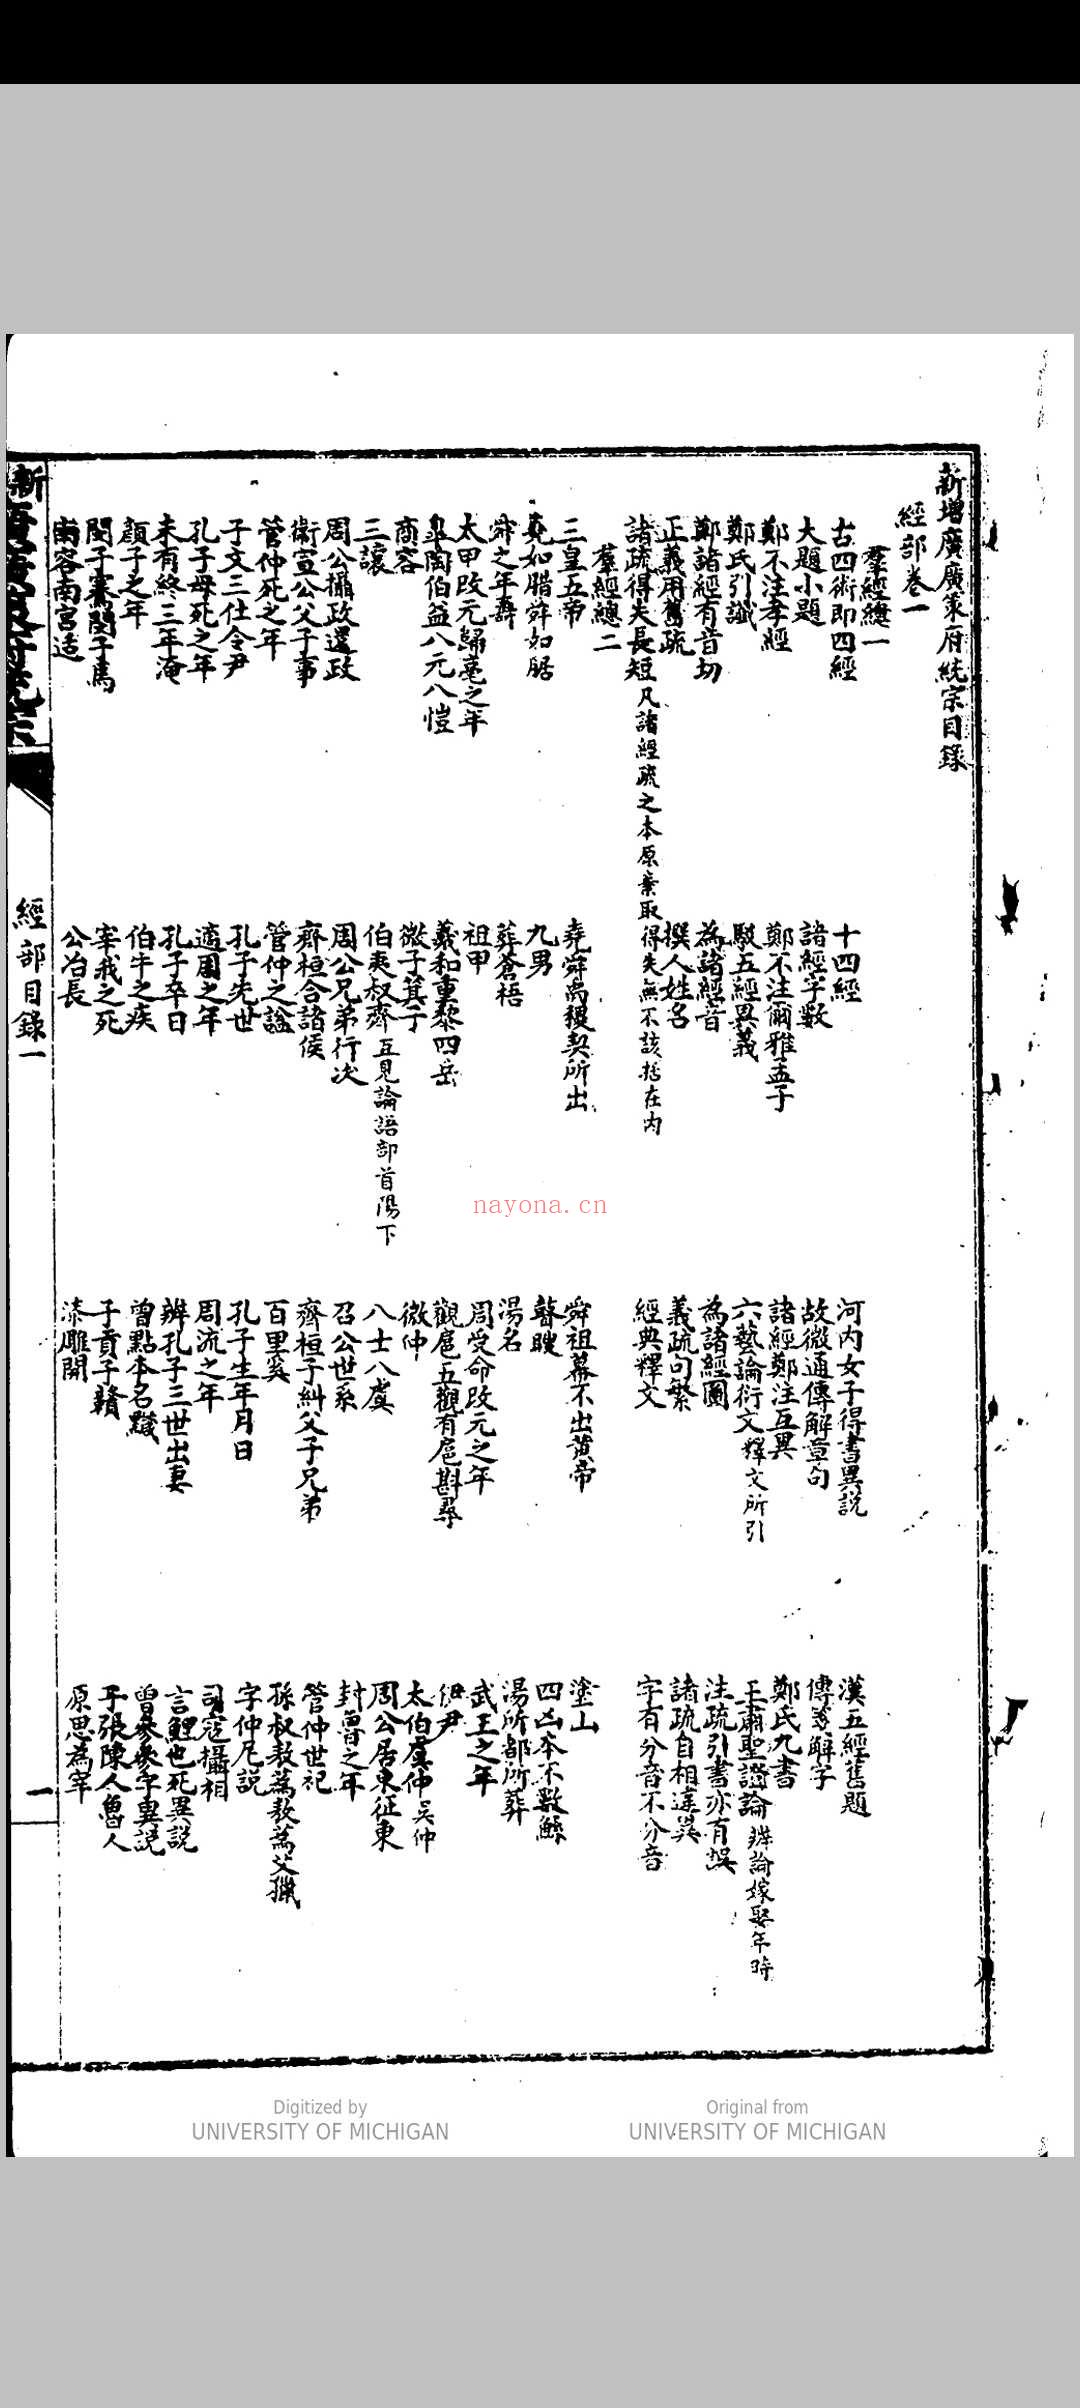 新增廣廣策府統宗目錄
經部卷一
羣經總一
古四術即四經
十四經
河內女子得書異説
漢五經舊題
大題小題
諸經字數
故微通傳解章句
傳箋解字
鄭不注孝經
鄭不注爾雅孟子
諸經鄭注互異
鄭氏九書
鄭氏引讖
駁五經異義
六藝論衍文 釋文所引
王肅聖證論 辨論嫁娶年時
鄭諸經有音切
為諸經音
為諸經圖
注疏引書亦有誤
正義用舊疏
撰人姓名
義疏句繁
諸疏自相違異
諸疏得失長短 凡諸經疏之本原棄取得失無不該括在內
經典釋文
字有分音不分音
羣經總二
三皇五帝
堯舜禹稷契所出
舜祖幕不出黃帝
塗山
堯如腊舜如腒
九男
瞽瞍
四凶本不數鯀
舜之年壽
葬蒼梧
湯名
湯所都所葬
太甲改元歸亳之年
祖甲
周受命改元之年
武王之年
皋陶伯益八元八愷
羲和重黎四岳
觀扈五觀有扈斟尋
伊尹
商容
微子箕子
微仲
太伯虞仲 吳仲
三讓
伯夷叔齊 互見論語部首陽下
八士八虞
周公居東征東
周公攝政還政
周公兄弟行次
召公世系
封魯之年
衛宣公父子事
齊桓合諸侯
齊桓子糾父子兄弟
管仲世祀
管仲死之年
管仲之諡
百里奚
孫叔敖蒍敖蒍艾獵
子文三仕令尹
孔子先世
孔子生年月日
字仲尼説
孔子母死之年
適周之年
周流之年
司寇攝相
未有終三年淹
孔子卒日
辨孔子三世出妻
言鯉也死異説
顏子之年
伯牛之疾
曾點本名黵
曾參參字異説
閔子騫閔子馬
宰我之死
子貢子贛
子張陳人魯人
南容南宮适
公冶長
漆雕開
原思為宰
經部目錄一
一
nayona.cn
Digitized by
UNIVERSITY OF MICHIGAN
Original from
UNIVERSITY OF MICHIGAN